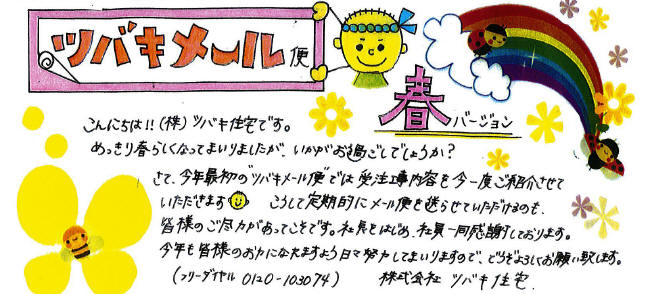 ツバキメール便
春バージョン
こんにちは!! (株) ツバキ住宅です。
めっきり春らしくなってまいりましたが、いかがお過ごしでしょうか?
さて、今年最初の"ツバキメール便"では受注工事内容を今一度ご紹介させて
いただきます こうして定期的にメール便を送らせていただけるのも、
皆様のご尽力があってこそです。社長をはじめ、社員一同感謝しております。
今年も皆様のお力になれますよう日々努力してまいりますので、どうぞよろしくお願い致します。
(フリーダイヤル 0120-103074) 株式会社 ツバキ住宅